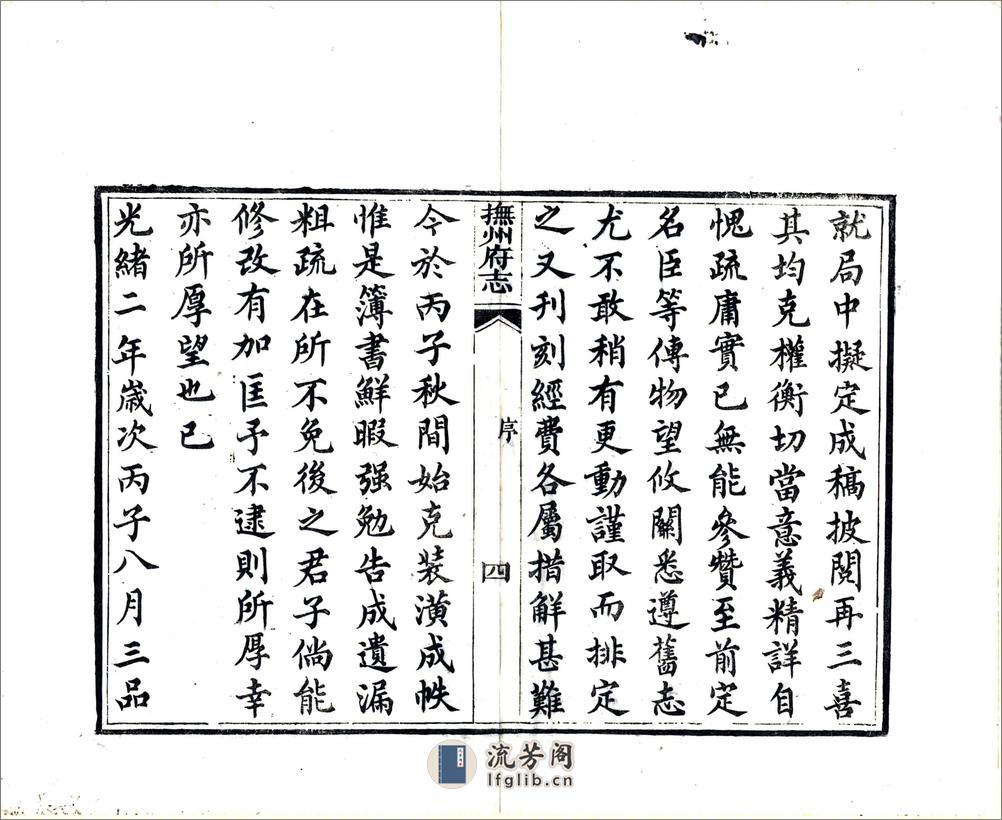 就局中擬定成稿披閱再三喜
其均克權衡切當意義精詳自
愧疏庸實已無能參贊至前定
名臣等傳物望攸關悉遵舊志
尤不敢稍有更動謹取而排定
之又刊刻經費各屬措解甚難
撫州府志
序
四
今於丙子秋間始克裝潢成帙
惟是簿書鮮暇强勉告成遺漏
粗疏在所不免後之君子倘能
修改有加匡予不逮則所厚幸
亦所厚望也已
光緒二年歲次丙子八月三品
流芳阁
lfglib.cn